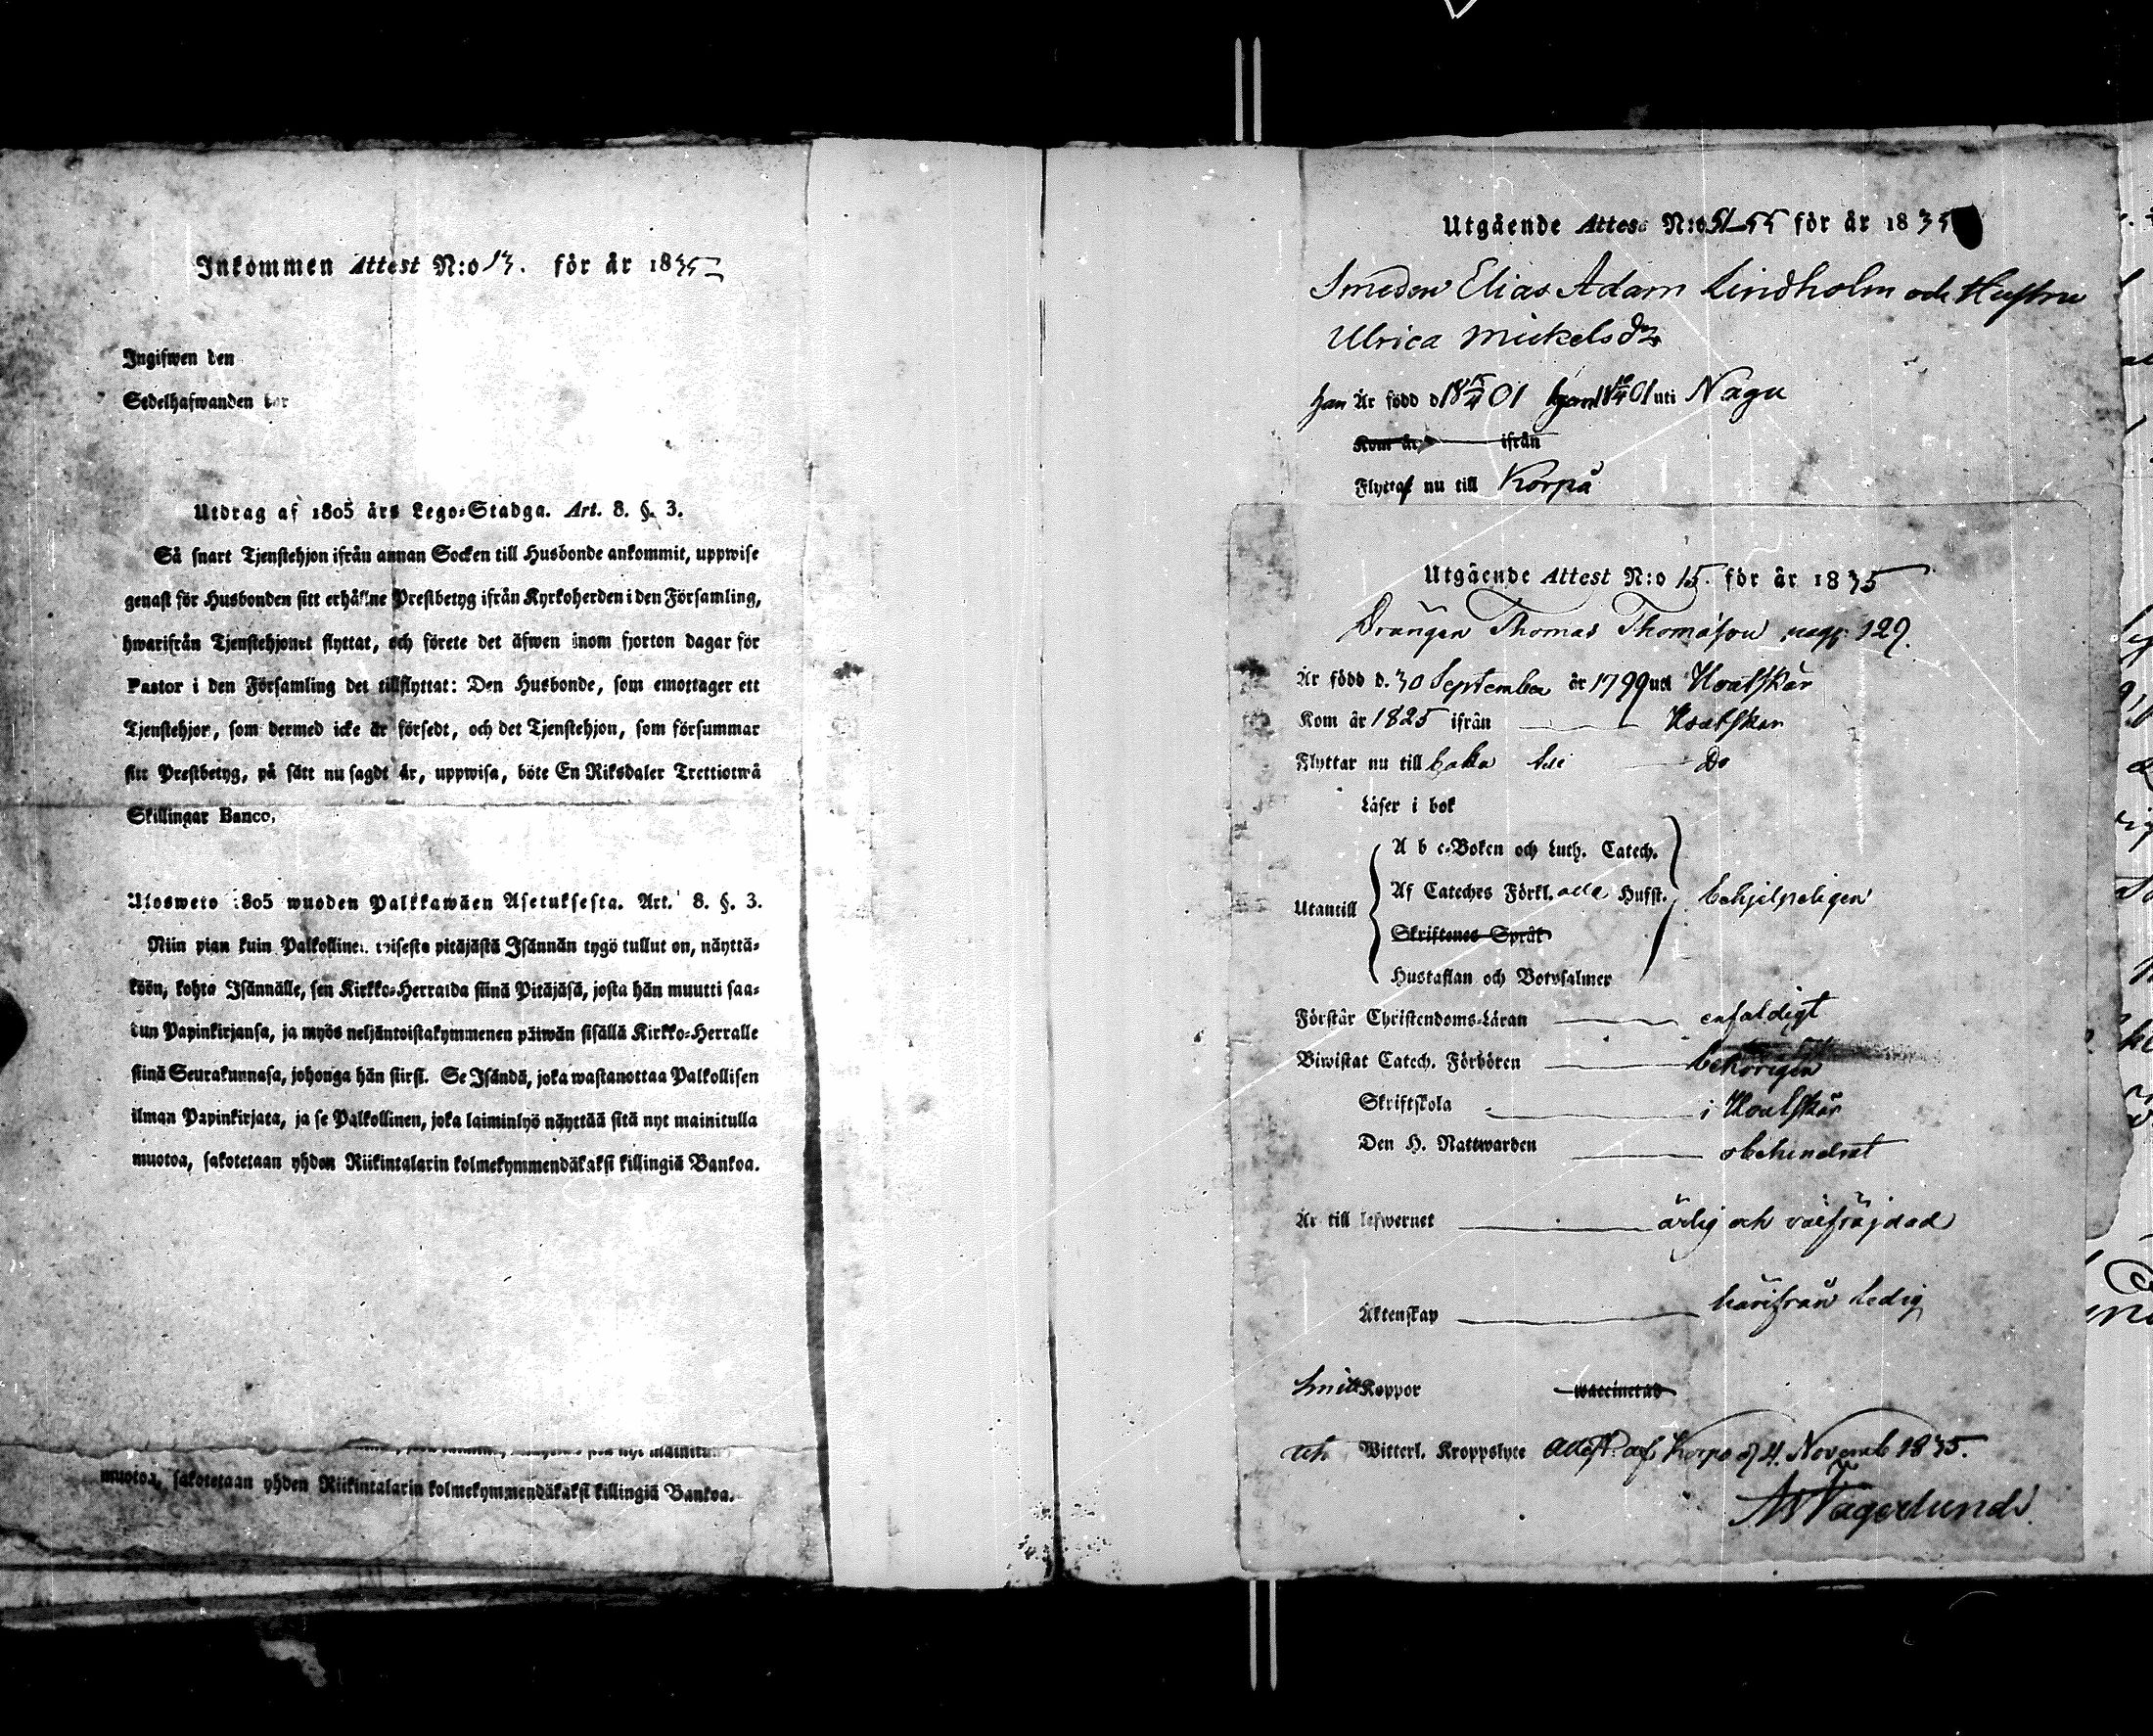 Inkommen Attest N:o 13. för år 1835
Ingifwen den
Sedelhafwanden bor
Utdrag af 1805 års Lego-Stadga. Art. 8. §. 3.
Så snart Tjenstehjon ifrån annan Socken till Husbonde ankommit, uppwise
genast för Husbonden sitt erhållne Prestbetyg ifrån Kyrkoherden i den Församling,
hwarifrån Tjenstehjonet flyttat, och förete det äfwen inom fjorton dagar för
Pastor i den Församling det tillflyttat: Den Husbonde, som emottager ett
Tjenstehjon, som dermed icke är försedt, och det Tjenstehjon, som försummar
sitt Prestbetyg, på sätt nu sagdt är, uppwisa, böte En Riksdaler Trettiotwå
Skillingar Banco.
Ulosweto 1805 wuoden Palkkawäen Asetuksesta. Art. 8. §. 3.
Niin pian kuin Palkollinen toisesta pitäjästä Isännän tygö tullut on, näyttä-
köön, kohta Isännälle, sen Kirkko-Herraida siinä Pitäjäsä, josta hän muutti saa-
dun Papinkirjansa, ja myös neljäntoistakymmenen päiwän sisällä Kirkko-Herralle
siinä Seurakunnasa, johonga hän siirsi. Se Isändä, joka wastanottaa Palkollisen
ilman Papinkirjata, ja se Palkollinen, joka laiminlyö näyttää sitä nyt mainitulla
muotoa, sakotetaan yhden Riikintalarin kolmekymmendäkaksi killingiä Bankoa.
muotoa, sakotetaan yhden Riikintalarin kolmekymmendäkaksi killingiä Bankoa.
Utgående Attest N:o 51-55 för år 1835
Smeden Elias Adam Lindholm och Hustru
Ulrica Mickelsdr
han Är född d 18 15/4 01 hon 18 10/4 01 uti Nagu
Kom år ifrån
Flyttat nu till Korpå
Utgående Attest N:o 15. för år 1835
Drängen Thomas Thomasson pag. 129.
Är född d. 30 September år 1799 uti Houtskär
Kom år 1825 ifrån Houtskär
Flyttar nu tillbaka till Do
Läser i bok
A b c-Boken och Luth. Catech.
Utantill Af Cateches Förkl. alla Hufst. behjelpeligen
Skriftenes Språk
Hustaflan och Botpsalmer
Förstår Christendoms-Läran enfaldigt
Biwistat Catech. Förhören behörigen
Skriftskola i Houtskär
Den H. Nattwarden obehindrat
Är till lefwernet ärlig och välfräjdad
Äktenskap härifrån ledig
haft Koppor waccinerad
utan Witterl. Kroppslyte Attest. af Korpo d 4. Novemb 1835.